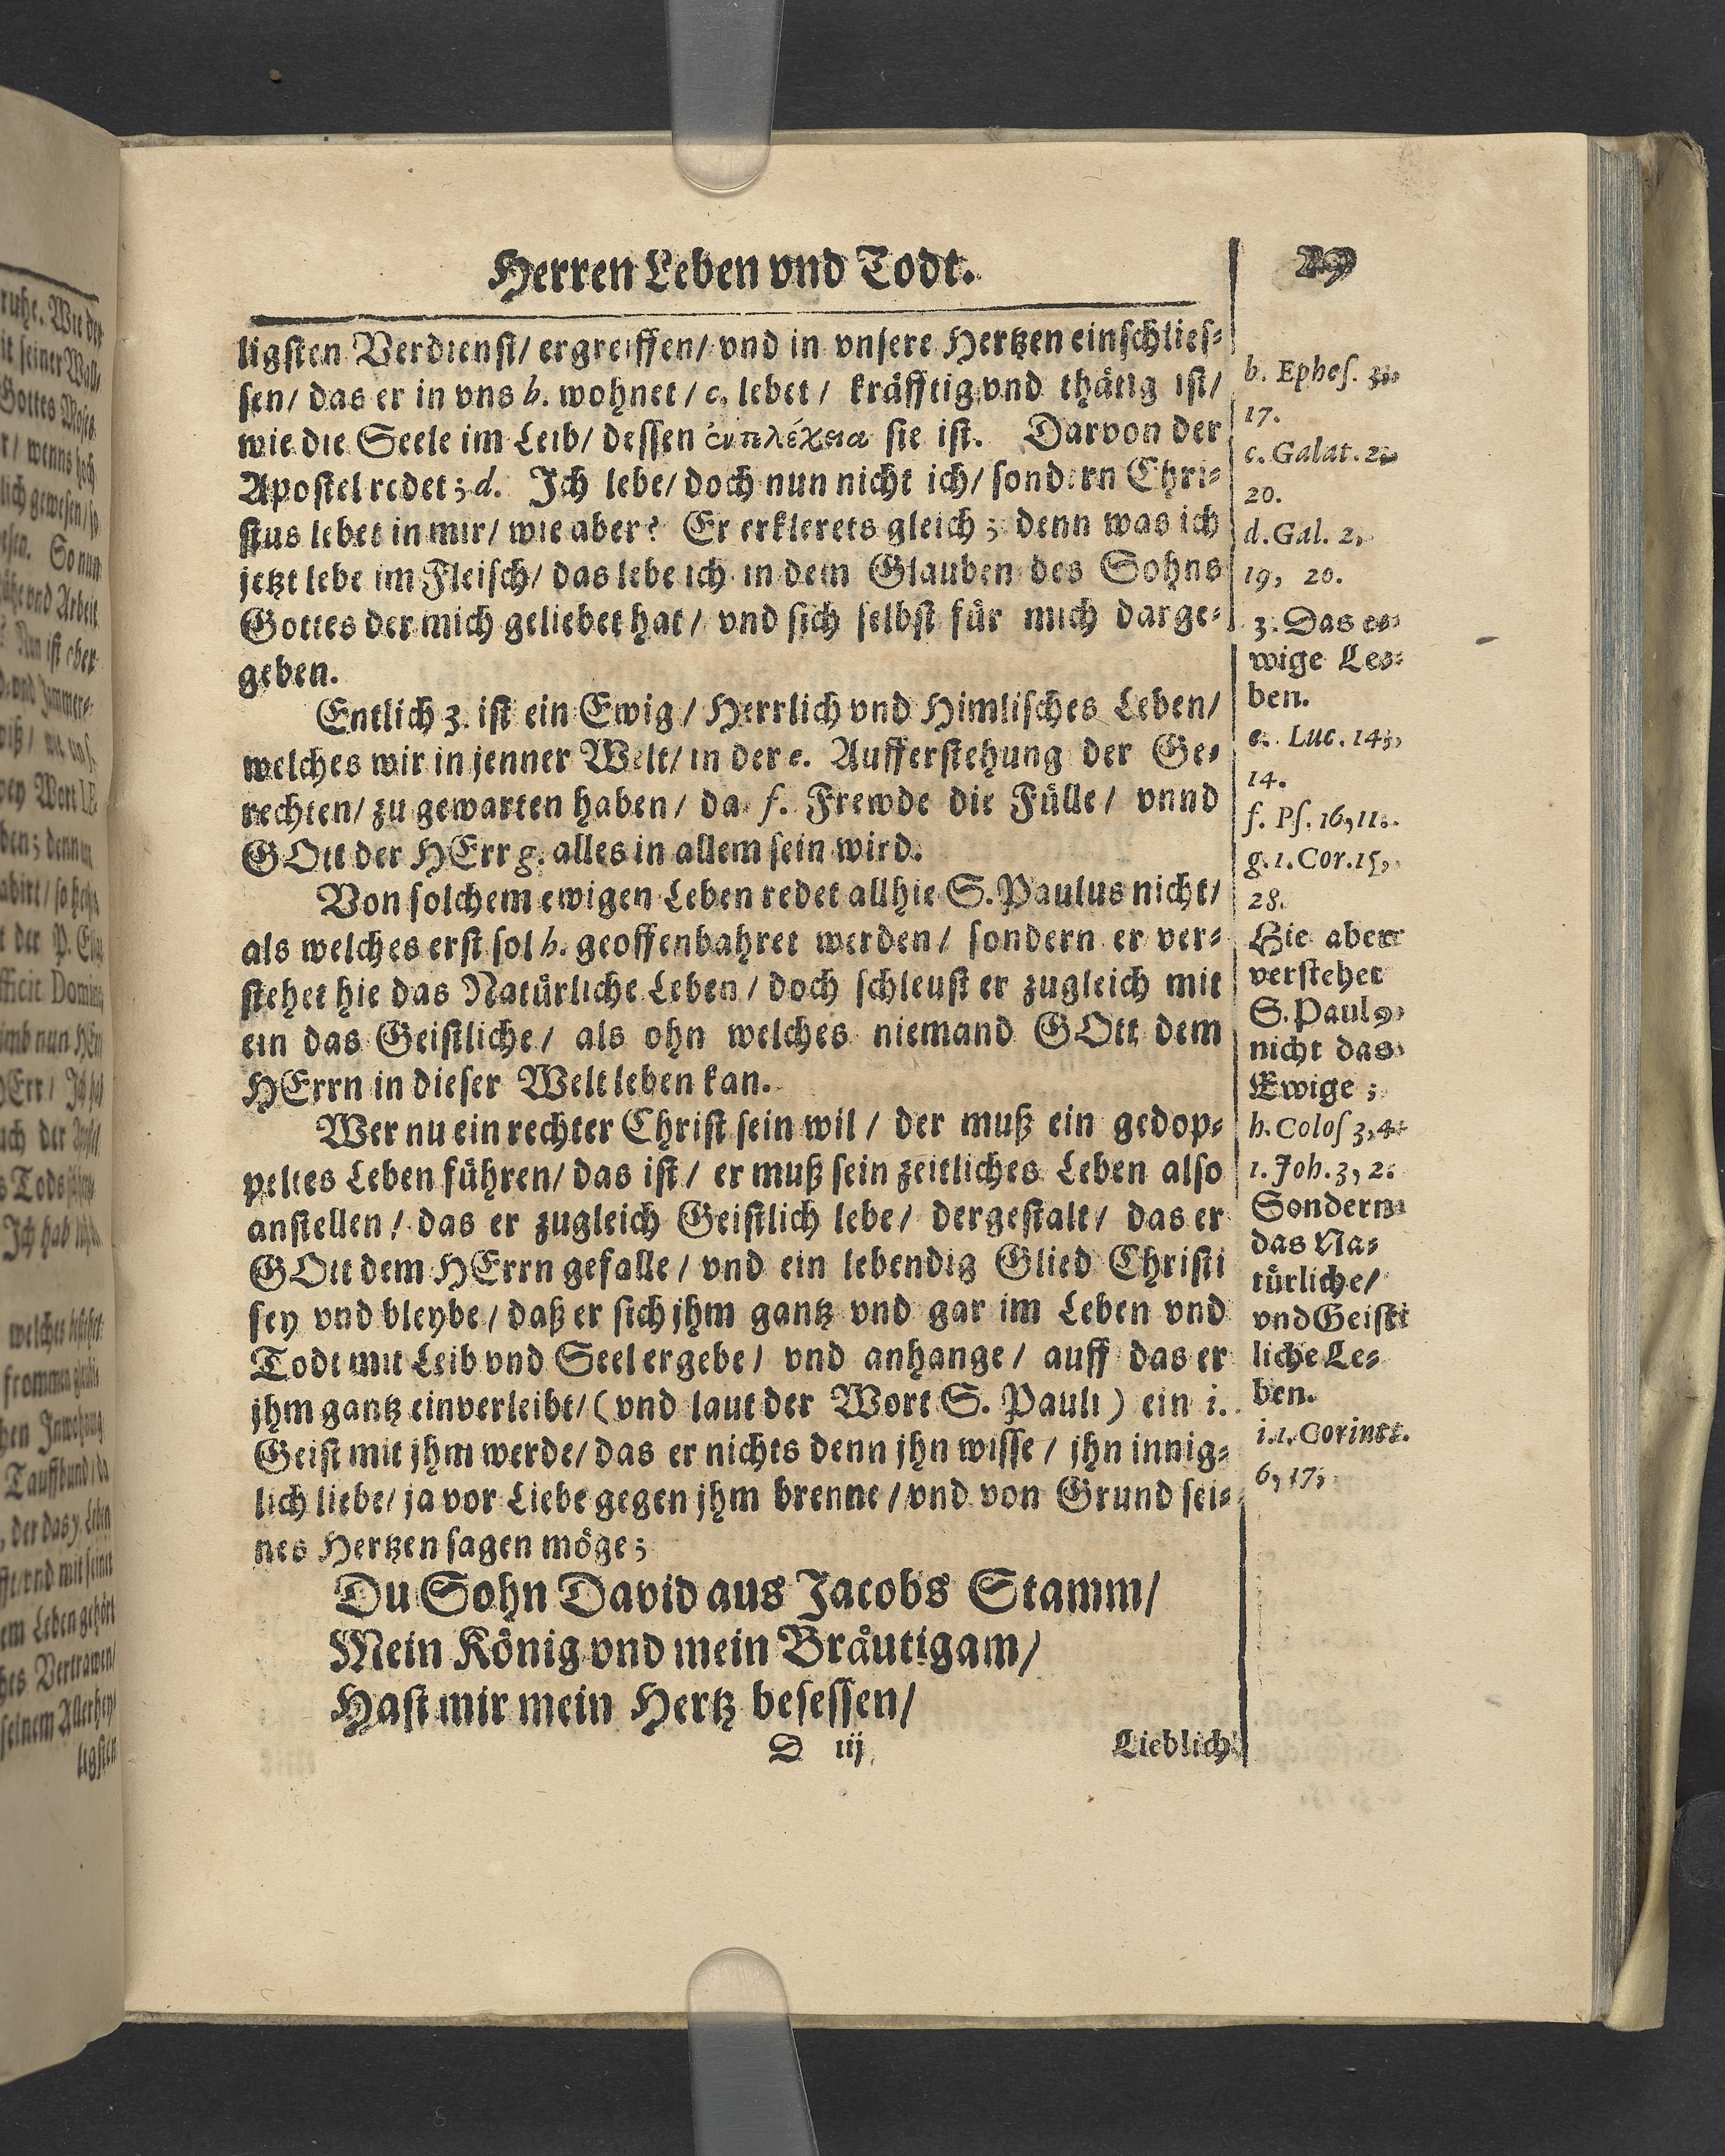 Herren Leben vnd Todt.
29
ligsten Verdienst/ ergreiffen/ vnd in vnsere Hertzen einschlies⸗
sen/ das er in vns b. wohnet/ c. lebet/ kräfftig vnd thätig ist/
wie die Seele im Leib/ dessen sie ist. Darvon der
Apostel redet; d. Ich lebe/ doch nun nicht ich/ sondern Chri⸗
stus lebet in mir/ wie aber? Er erklerets gleich; denn was ich
jetzt lebe im Fleisch/ das lebe ich in dem Glauben des Sohns
Gottes der mich geliebet hat/ vnd sich selbst für mich darge⸗
geben.
Entlich 3. ist ein Ewig/ Herrlich vnd Himlisches Leben/
welches wir in jenner Welt/ in der e. Aufferstehung der Ge⸗
rechten/ zu gewarten haben/ da f. Frewde die Fülle/ vnnd
GOtt der HErr g. alles in allem sein wird.
Von solchem ewigen Leben redet allhie S. Paulus nicht/
als welches erst sol h. geoffenbahret werden/ sondern er ver⸗
stehet hie das Natürliche Leben/ doch schleust er zugleich mit
ein das Geistliche/ als ohn welches niemand GOtt dem
HErrn in dieser Welt leben kan.
Wer nu ein rechter Christ sein wil/ der muß ein gedop⸗
peltes Leben führen/ das ist/ er muß sein zeitliches Leben also
anstellen/ das er zugleich Geistlich lebe/ dergestalt/ das er
GOtt dem HErrn gefalle/ vnd ein lebendig Glied Christi
sey vnd bleybe/ daß er sich jhm gantz vnd gar im Leben vnd
Todt mit Leib vnd Seel ergebe/ vnd anhange/ auff das er
jhm gantz einverleibt/ (vnd laut der Wort S. Pauli) ein i.
Geist mit jhm werde/ das er nichts denn jhn wisse/ jhn innig⸗
lich liebe/ ja vor Liebe gegen jhm brenne/ vnd von Grund sei⸗
nes Hertzen sagen möge;
Du Sohn David aus Jacobs Stamm/
Mein König vnd mein Bräutigam/
Hast mir mein Hertz besessen/
D iij
Lieblich
b. Ephes. 3,
17.
c. Galat. 2,
20.
d. Gal. 2,
19, 20.
3. Das e⸗
wige Le⸗
ben.
e. Luc. 14,
14.
f. Ps. 16, 11.
g. 1. Cor. 15,
28.
Hie aber
verstehet
S. Paulꝰ
nicht das
Ewige;
h. Colos 3, 4.
1. Joh. 3, 2.
Sondern
das Na⸗
türliche/
vnd Geist⸗
liche Le⸗
ben.
i. 1. Corint.
6, 17.